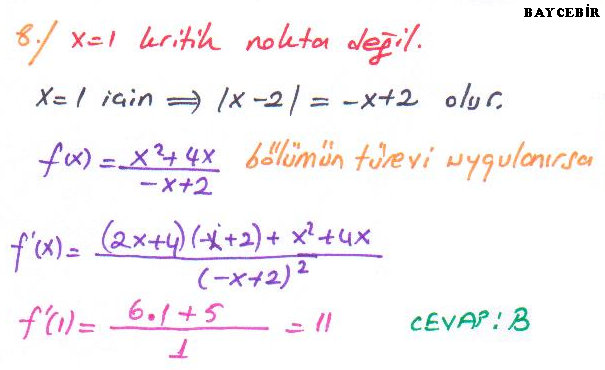 BAYCEBİR
8./ x=1 kritik nokta değil.
x=1 için ⇒ |x-2| = -x+2 olur.
f(x) = (x²+4x)/(-x+2) bölümün türevi uygulanırsa
f'(x) = ((2x+4)(-x+2) + x²+4x)/(-x+2)²
f'(1) = (6.1+5)/1 = 11 CEVAP: B